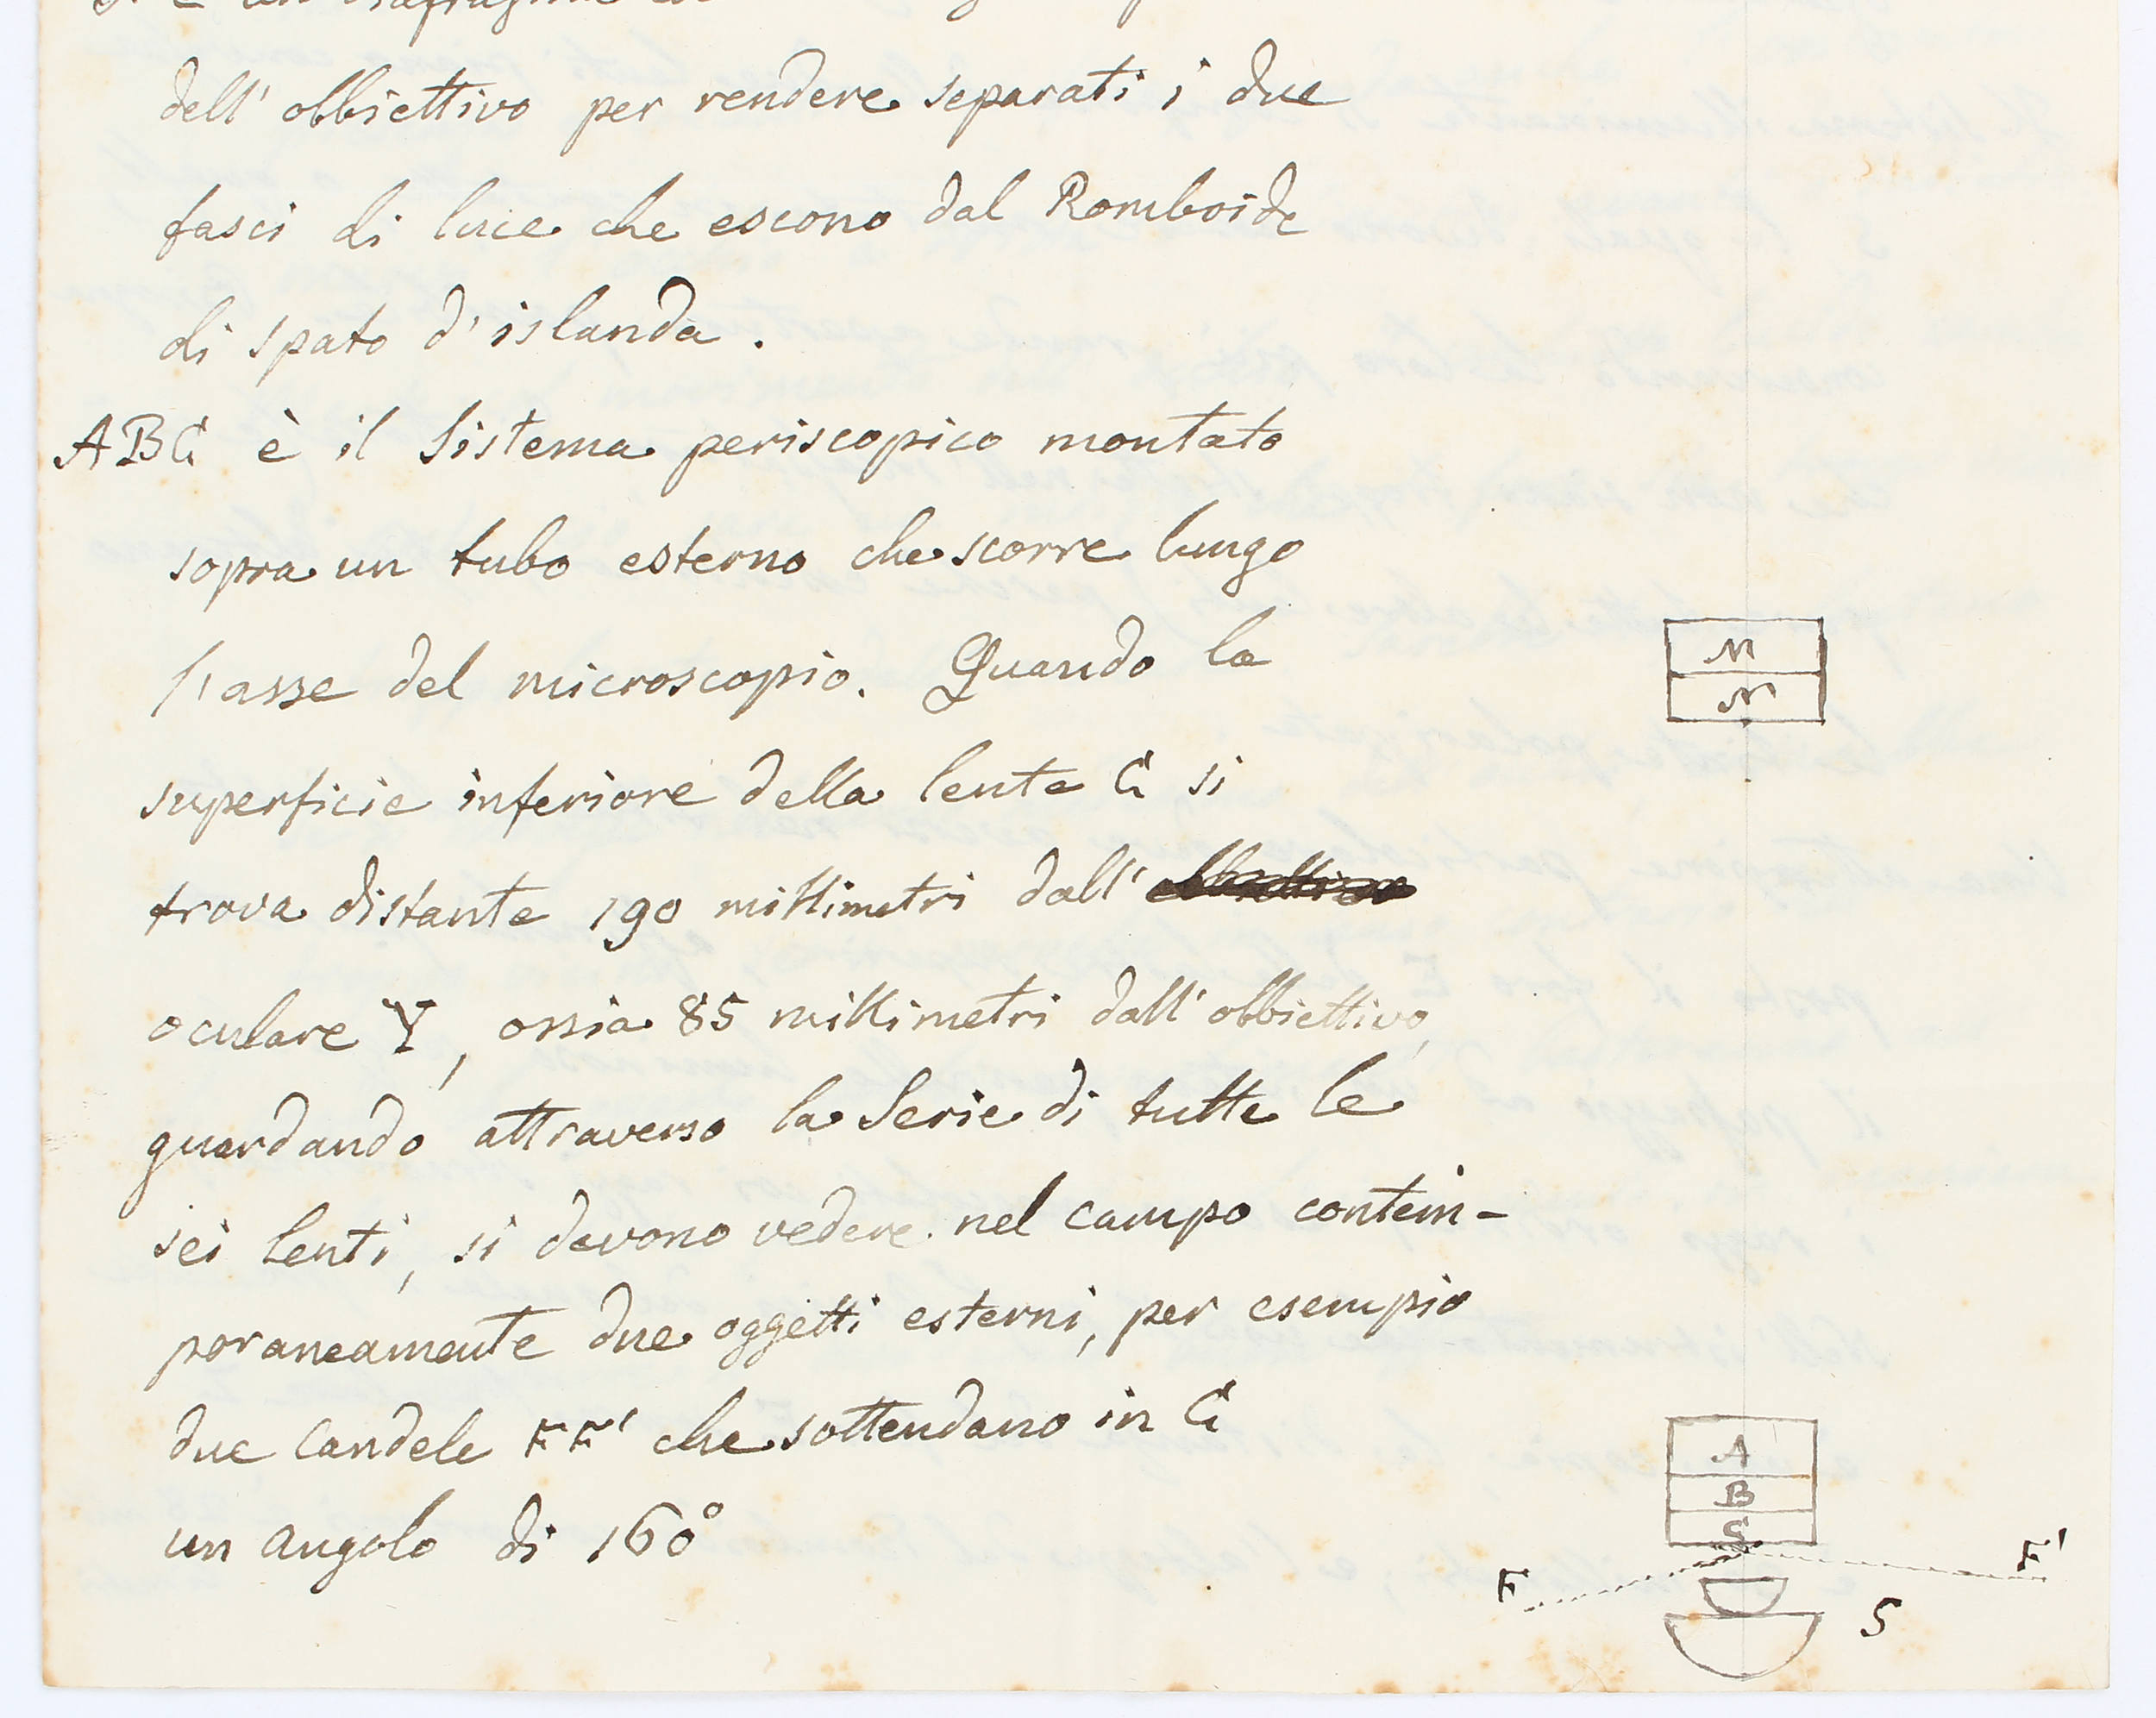 è un diaframma
dell' obbiettivo per rendere separati i due
fasci di luce che escono dal Romboide
di spato d' islanda.
ABC è il Sistema periscopico montato
sopra un tubo esterno che scorre lungo
l'asse del microscopio. Quando la
superficie inferiore della lente C si
trova distante 190 millimetri dall' obbiettivo
oculare Y, ossia 85 millimetri dall' obbiettivo,
guardando attraverso la Serie di tutte le
sei lenti, si devono vedere nel campo contem-
poraneamente due oggetti esterni, per esempio
due Candele FF' che sottendano in C
un angolo di 160°
M
N
A
B
C
F
F'
S